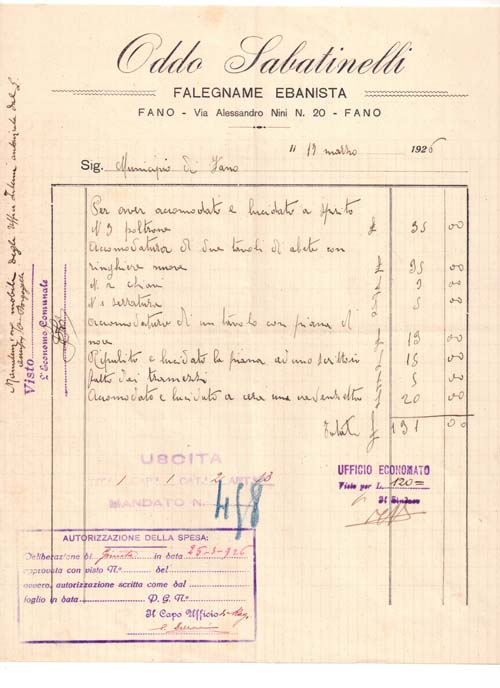 Oddo Sabatinelli
FALEGNAME EBANISTA
FANO - Via Alessandro Nini N. 20 - FANO
Il 19 marzo 1926
Sig. Municipio di Fano
Per aver accomodato e lucidato a spirito
N 3 poltrone £ 35 00
Accomodatura di due tavoli di abete con
ringhiere nuove £ 35
N 2 chiavi £ 9
N 1 serratura £ 5
Accomodatura di un tavolo con piana di
noce £
Ripulito e lucidato la piana ad uno scrittoio £ 15
fatto dei tramezzi £ 5
Accomodato e lucidato a cera una credenzetta £ 20
Totale £ 131 00
Visto
L'Economo Comunale
USCITA
MANDATO N.
458
UFFICIO ECONOMATO
Visto per L. 120=
Il Sindaco
AUTORIZZAZIONE DELLA SPESA:
Deliberazione di Giunta in data 25-3-926
approvata con visto N.° del
ovvero, autorizzazione scritta come dal
foglio in data P. G. N.°
Il Capo Ufficio